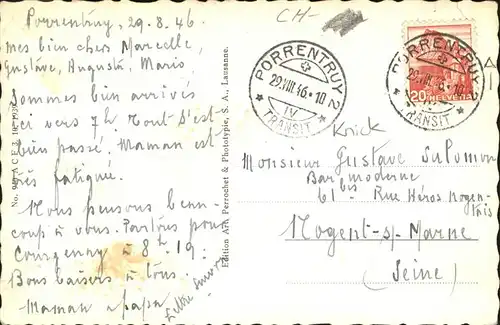 Porrentruy, 29.8.46
mes bien chers Marcelle,
Gustave, Augusta, Mario
Sommes bien arrivés
ici vers 7h Tout s'est
bien passé. Maman est
très fatiguée.
Nous pensons beau-
coup à vous. Partons pour
Courgenay à 8h 19.
Bons baisers à tous.
Maman & papa
Lettre suivra
Edition Art. Perrochet & Phototypie, S. A., Lausanne.
CH-
PORRENTRUY 2
29.VIII.46.10
IV
TRANSIT
20
HELVETIA
PORRENTRUY 2
TRANSIT
Knick
Monsieur Gustave Sulomon
Bar moderne
61bis Rue Héros Nogen-
tais
Nogent-s/-Marne
(Seine)